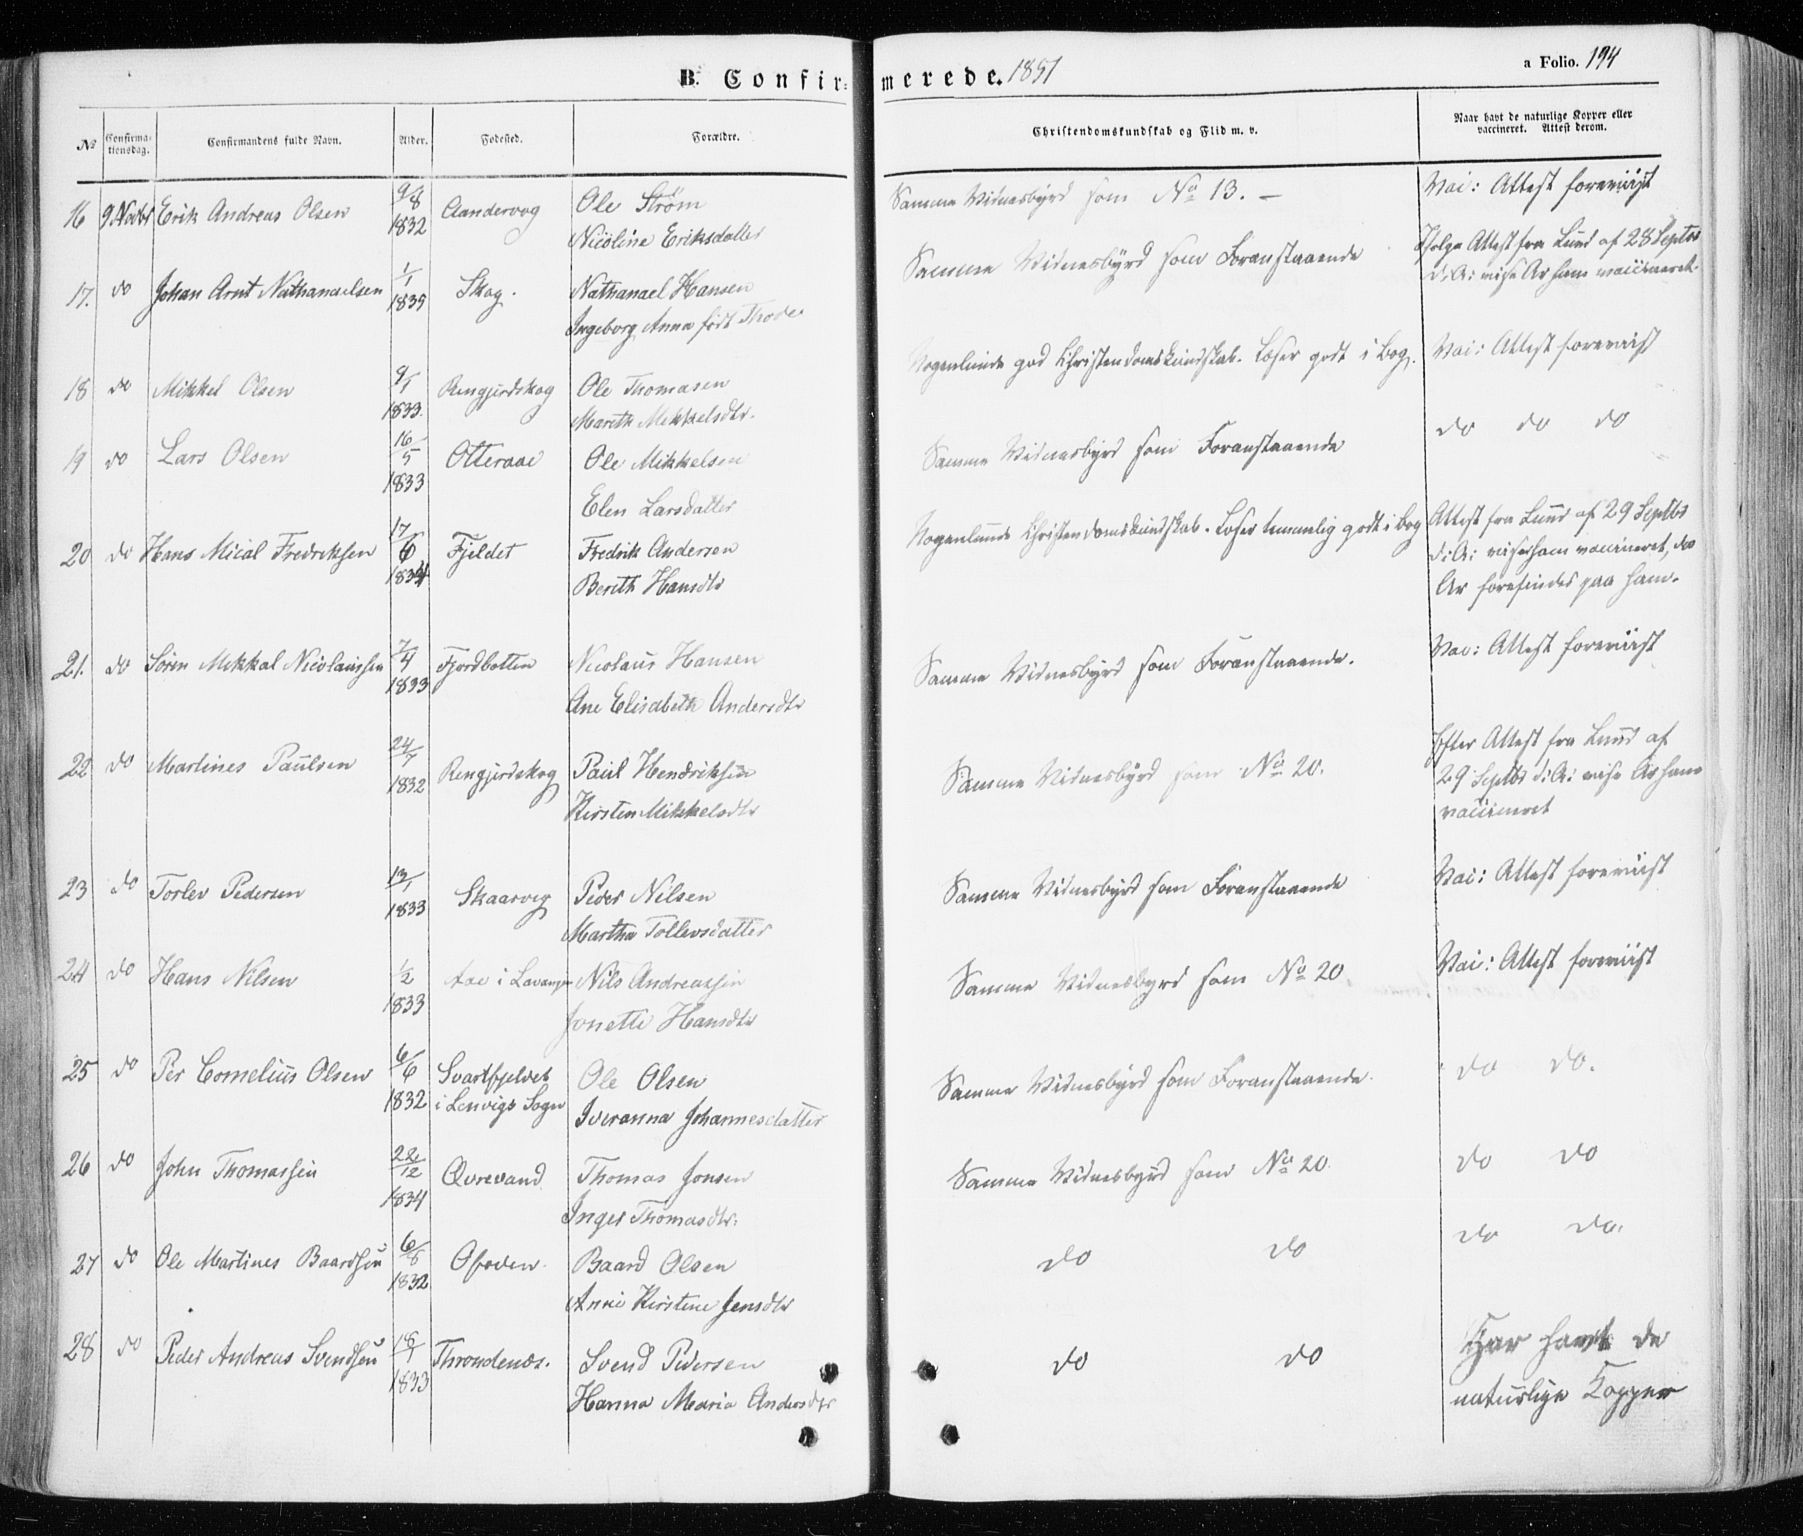 B. Confir- merede. 1851
a Folio. 194
No Confirmationsdag. Confirmandens fulde Navn. Alder. Fødested. Forældre. Christendomskundskab og Flid m. v. Naar havt de naturlige Kopper eller vaccineret. Attest derom.
16 9. Novbr Erik Andreas Olsen 9/8 1832 Ole Strøm Samme Vidnesbyrd som No 13. – Vac: Attest foreviist
Nicoline Eriksdatter
17. do Johan Arnt Nathanaelsen 1/1 1835 Skog. Nathanael Hansen Samme Vidnesbyrd som Foranstaaende Ifølge Attest fra Lund af 28 Septbr
Ingeborg Anna født Thode. d: A: vise Ar ham vaccineret.
18 do Mikkel Olsen 9/1 1833. Rengjerdskog Ole Thomasen Nogenlunde god Christendomskundskab. Læser godt i Bog. Vac: Attest foreviist
Mareth Mikkelsdtr.
19 do Lars Olsen 16/5 1833 Otteraae Ole Mikkelsen Samme Vidnesbyrd som Foranstaaende do do do
Elen Larsdatter
20 do Hans Mical Fredriksen 17/6 1834 Fjeldet Fredrik Andersen Nogenlunde Christendomskundskab. Læser temmelig godt i Bog Attest fra Lund af 29 Septbr
Berith Hansdtr d: A: viser ham vaccineret, do
Ar forefindes paa ham.
21. do Sören Mikkal Nicolaissen 7/4 1833 Fjordbotten Nicolaus Hansen Samme Vidnesbyrd som Foranstaaende. Vac: Attest foreviist
Ane Elisabeth Andersdtr
22 do Martines Paulsen 24/7 1832 Rengjerdskog Paul Hendriksen Samme Vidnesbyrd som No 20. Efter Attest fra Lund af
Kirsten Mikkelsdtr 29 Septbr d: A: vise Ar ham
vaccineret
23 do Torlev Pedersen 13/1 1833 Skaarvig Peder Nilsen Samme Vidnesbyrd som Foranstaaende Vac: Attest foreviist
Martha Tollevsdatter
24 do Hans Nilsen 1/2 1833 Aae i Lavangen Nils Andreassen Samme Vidnesbyrd som No 20 Vac: Attest foreviist
Jonette Hansdtr
25 do Per Cornelius Olsen 6/6 1832 Svartfjelvet i Lenvigs Sogn Ole Olsen Samme Vidnesbyrd som Foranstaaende. do do.
Iveranna Johannesdatter
26 do John Thomassen 22/12 1834 Øvrevand Thomas Jonsen Samme Vidnesbyrd som No 20. do do
Inger Thomasdtr.
27 do Ole Martines Baardsen 6/8 1832 Ofoden Baard Olsen do do do do.
Anne Kirstine Jensdtr
28 do Peder Andreas Svendsen 18/1 1833 Throndenæs. Svend Pedersen do do Har havt de
Hanna Maria Andersdtr naturlige Kopper